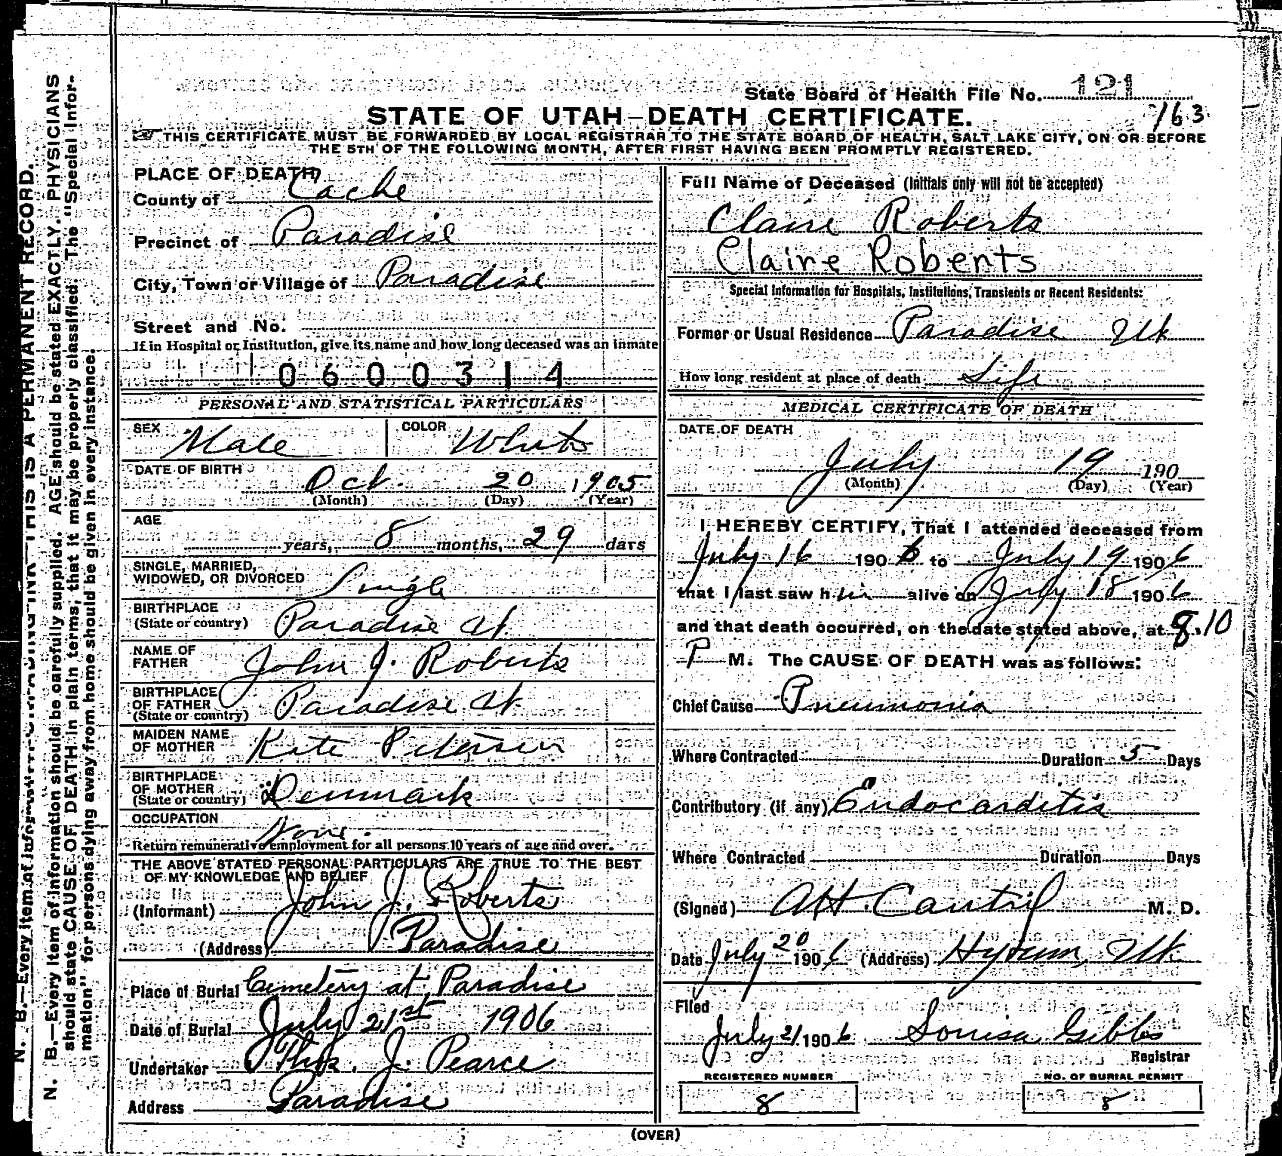 State Board of Health File No. 121
163
STATE OF UTAH—DEATH CERTIFICATE.
THIS CERTIFICATE MUST BE FORWARDED BY LOCAL REGISTRAR TO THE STATE BOARD OF HEALTH, SALT LAKE CITY, ON OR BEFORE
THE 5TH OF THE FOLLOWING MONTH, AFTER FIRST HAVING BEEN PROMPTLY REGISTERED.
PLACE OF DEATH
County of Cache
Precinct of Paradise
City, Town or Village of Paradise
Street and No.
If in Hospital or Institution, give its name and how long deceased was an inmate
0600314
PERSONAL AND STATISTICAL PARTICULARS
SEX Male COLOR White
DATE OF BIRTH Oct. 20 1905
(Month) (Day) (Year)
AGE
years, 8 months, 29 days
SINGLE, MARRIED,
WIDOWED, OR DIVORCED Single
BIRTHPLACE
(State or country) Paradise Ut
NAME OF
FATHER John J. Roberts
BIRTHPLACE
OF FATHER
(State or country) Paradise Ut
MAIDEN NAME
OF MOTHER Kate Petersen
BIRTHPLACE
OF MOTHER
(State or country) Denmark
OCCUPATION
None.
Return remunerative employment for all persons 10 years of age and over.
THE ABOVE STATED PERSONAL PARTICULARS ARE TRUE TO THE BEST
OF MY KNOWLEDGE AND BELIEF
(Informant) John J. Roberts
(Address) Paradise
Place of Burial Cemetery at Paradise
Date of Burial July 21st 1906
Undertaker Thos. J. Pearce
Address Paradise
Full Name of Deceased (Initials only will not be accepted)
Claire Roberts
Claire Roberts
Special Information for Hospitals, Institutions, Transients or Recent Residents:
Former or Usual Residence Paradise Utk
How long resident at place of death Life
MEDICAL CERTIFICATE OF DEATH
DATE OF DEATH
July 19 190
(Month) (Day) (Year)
I HEREBY CERTIFY, That I attended deceased from
July 16 1906 to July 19 1906
that I last saw him alive on July 18 1906
and that death occurred, on the date stated above, at 8.10
P M. The CAUSE OF DEATH was as follows:
Chief Cause Pneumonia
Where Contracted Duration 5 Days
Contributory (if any) Endocarditis
Where Contracted Duration Days
(Signed) M. D.
Date July 20 1906 (Address) Hyrum, Utk
Filed
July 21 1906 Louisa Gibbs
Registrar
REGISTERED NUMBER
8
NO. OF BURIAL PERMIT
8
(OVER)
N. B.—Every item of information should be carefully supplied. AGE should be stated EXACTLY. PHYSICIANS
should state CAUSE OF DEATH in plain terms, that it may be properly classified. The "Special Infor-
mation" for persons dying away from home should be given in every instance.